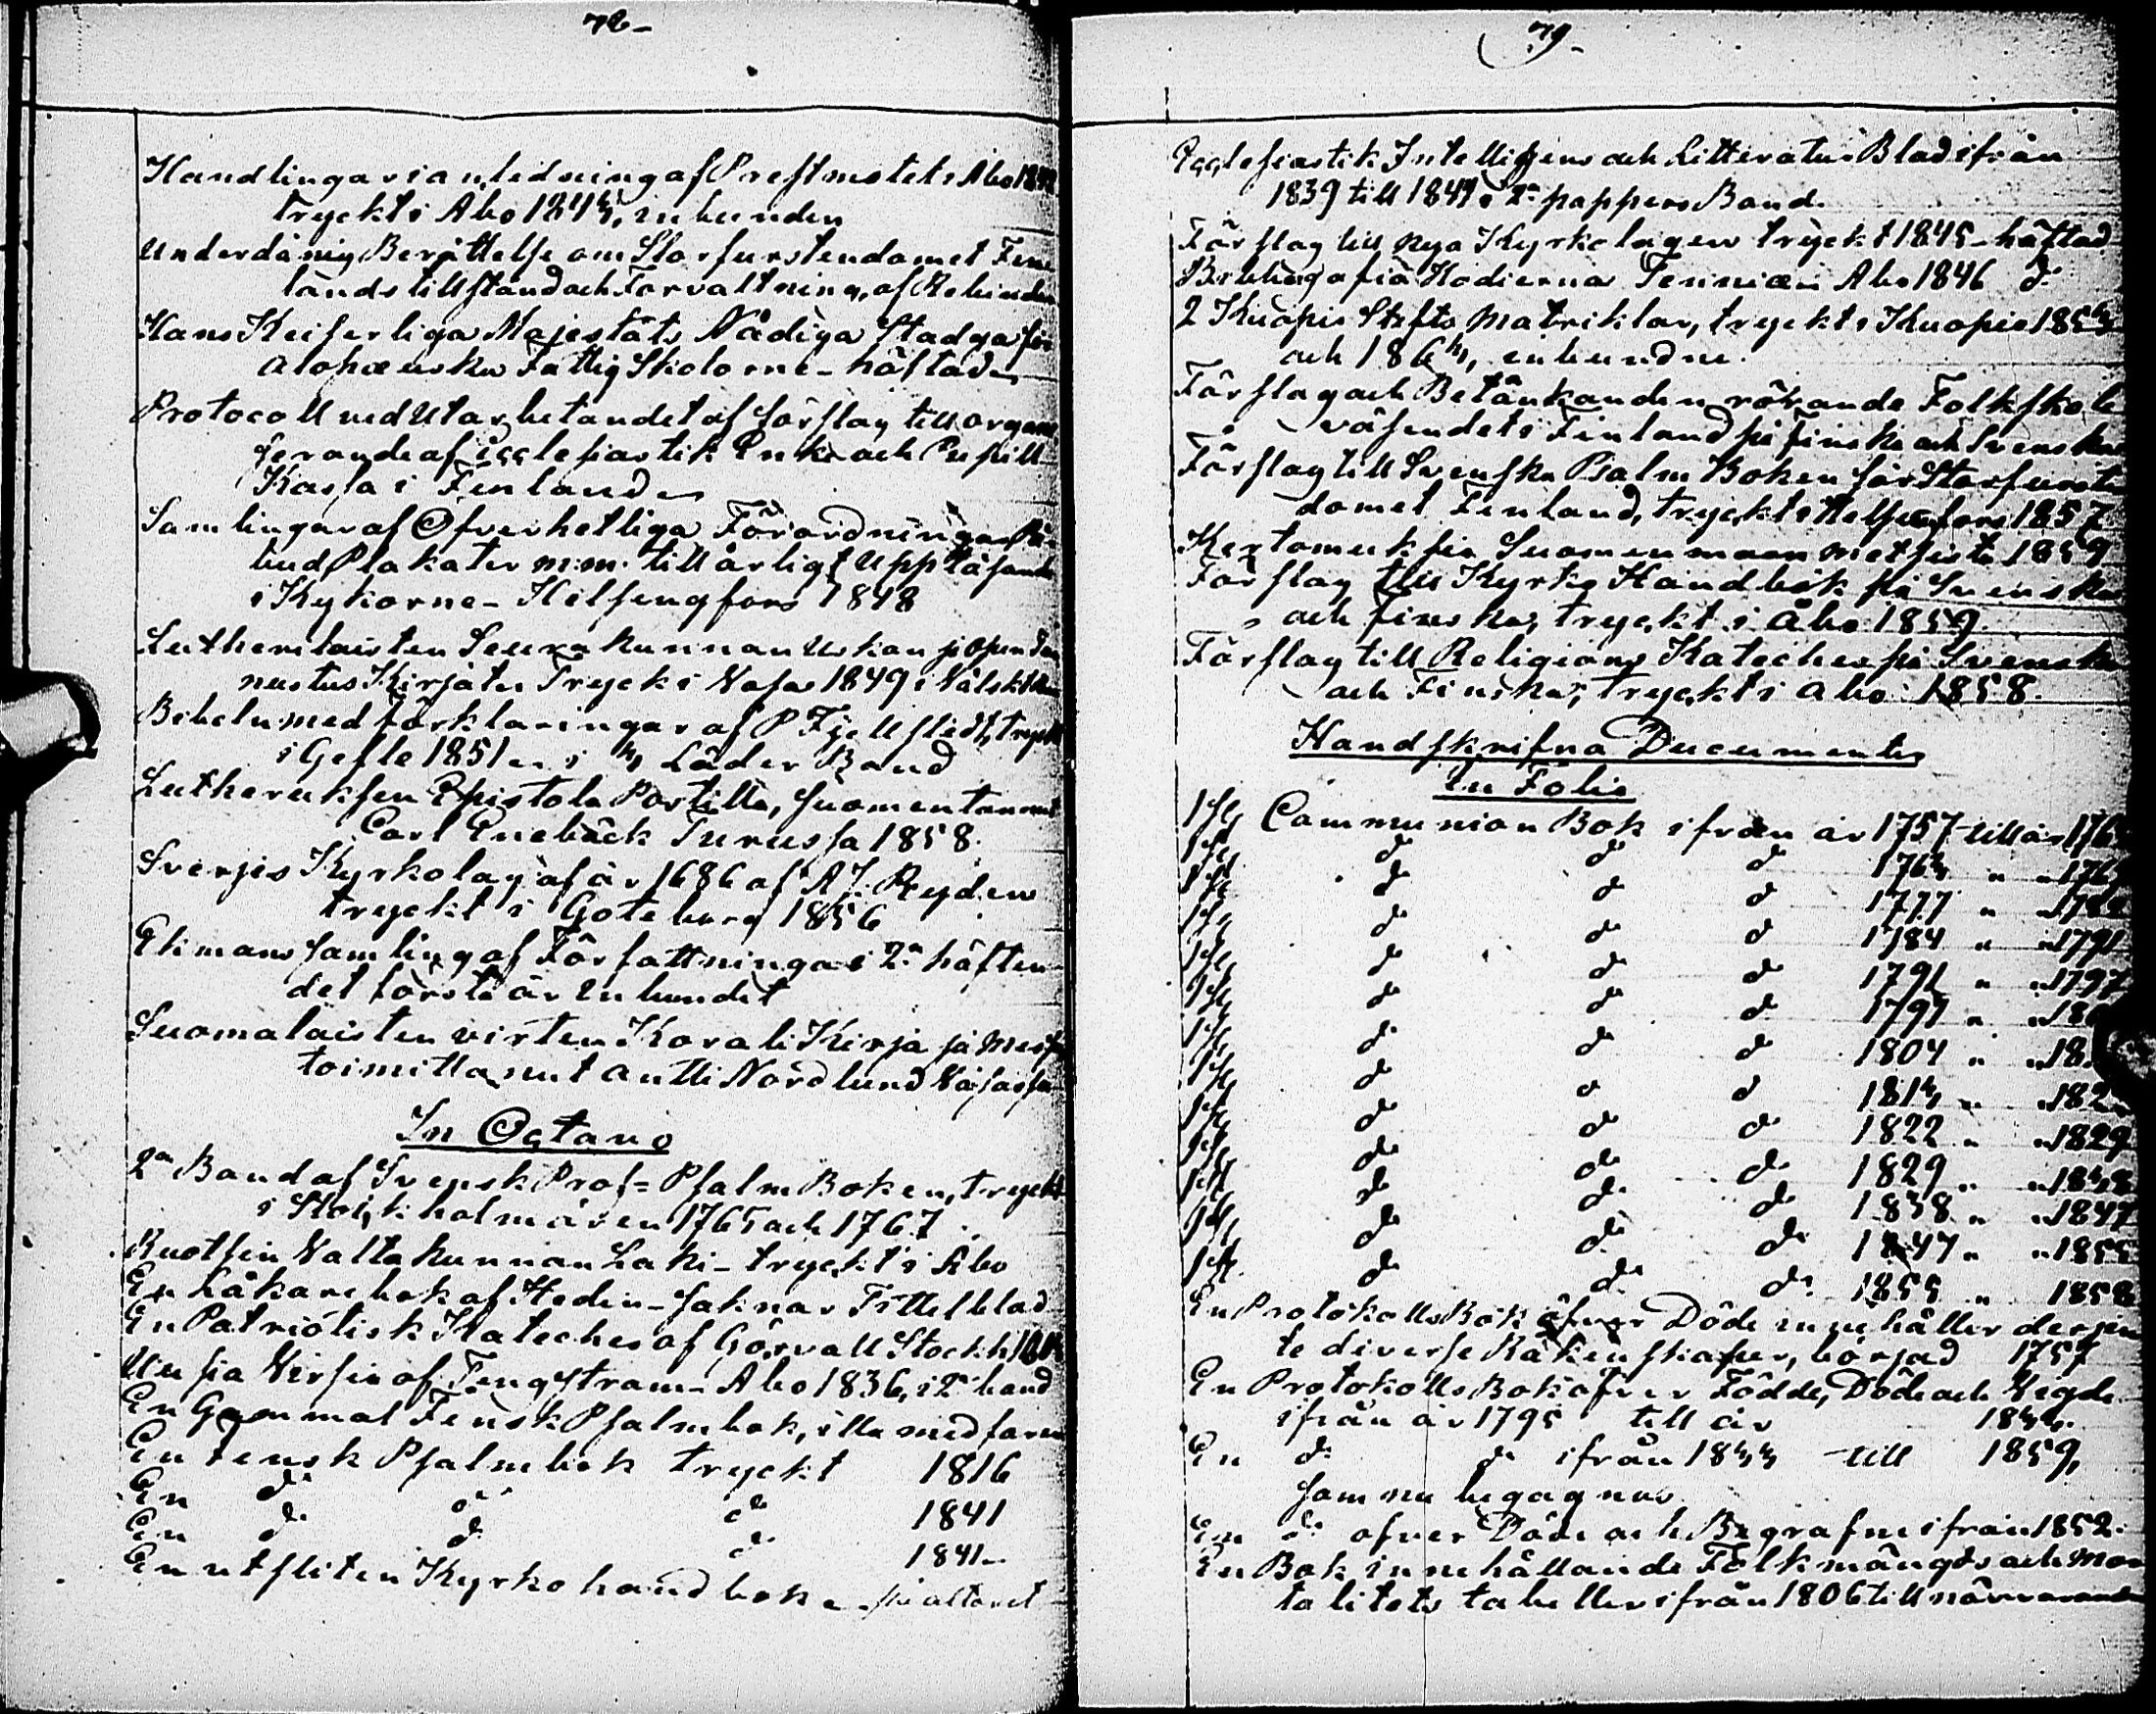 78-
Handlingar i anledning af Prestmötet i Åbo 1842
tryckt i Åbo 1843, inbunden
Underdånig Berättelse om Storfurstendömet Fin
lands tillstånd och Förvaltning, af Rehbinder
Hans Keiserliga Majestäts Nådiga Stadga för
Alopæuska Fattig Skolorne - häftad
Protocoll ved Utarbetandet af förslag till organi
serande af Ecclesiastik Enke och Pupill
Kassa i Finland
Samlingar af Öfverhetliga Förordningar På-
bud Plakater m:m. till årligt Uppläsande
i Kykorne - Helsingfors 1848
Lutherilaisten Seurakunnan Uskon ja opin Tun
nustus Kirjat Tryckt i Vasa 1849 i Välskt band
Bibeln med förklaringar af P Fjellstedt, tryckt
i Gefle 1851 i 3 Läder Band
Lutheruksen Epistola Postilla, suomentanut
Carl Enebäck Turussa 1858.
Sverjes Kyrkolag af år 1686 af A J. Ryden
tryckt i Göteborg 1856
Ekmans samling af Författningar i 2:a häften
det första är inbundet
Suomalaisten virten Korali Kirja ja Messu
toimittanut Antti Nordlund Vasassa
In Octavo
2:a Band af Svensk Prof-Psalm Boken, tryckt
i Stockholm åren 1765 och 1767
Ruotsin Valtakunnan Laki - tryckt i Åbo
En Läkarebok af Hedin - saknar Tittelblad
En Patriotisk Kateches af Görvall Stockh
Uusia Virsiä af Tengström - Åbo 1836, i 2:a band
En Gammal Finsk Psalmbok, illa medfaren
En Finsk Psalmbok tryckt 1816
En d:o d:o d:o 1841
En d:o d:o d:o 1841
En utsliten Kyrko handbok - på altaret
79-
Ecclesiastik Intelligens och Litteratur Blad ifrån
1839 till 1841 i 2:a pappers Band.
Förslag till Nya Kyrkolagen tryckt 1845 - häftad
Hodierna Fenniæ i Åbo 1846 d:o
2 Kuopio Stifts Matriklar, tryckt i Kuopio 1853
och 1863, inbundne.
Förslag och Betänkanden rörande Folkskole
väsendet i Finland på finska och Svenska
Förslag till Svenska Psalm Boken för Storfursten
dömet Finland, tryckt i Helsingfors 1857
Kertomuksia Suomenmaan metsistä 1859
Förslag till Kyrko Handbok på Svenska
och finska, tryckt i Åbo 1859.
Förslag till Religions Kateches på Svenska
och Finska, tryckt i Åbo 1858.
Handskrifna Documenter
In Folio
1 st Communion Bok ifrån år 1757 till år
1 st d:o d:o d:o 1763 " "
1 st d:o d:o d:o 1777 " "
1 st d:o d:o d:o 1784 " " 1791
1 st d:o d:o d:o 1791 " " 1797
1 st d:o d:o d:o 1797 " "
1 st d:o d:o d:o 1804 " "
1 st d:o d:o d:o 1813 " "
1 st d:o d:o d:o 1822 " " 1829
1 st d:o d:o d:o 1829 " " 1838
1 st d:o d:o d:o 1838 " " 1847
1 st d:o d:o d:o 1847 " " 1855
1 st d:o d:o d:o 1855 " 1858
En Protokolls Bok öfver Döde innehåller derjem
te diverse Räkenskaper, börjad 1757
En Protokolls Bok öfver Födde, Döde och Vigde
ifrån år 1795 till år
En d:o d:o ifrån 1833 till 1859,
som nu begagnas.
En d:o öfver Döde och Begrafne ifrån 1852.
En Bok innehållande Folkmängds och Mor
talitets tabeller ifrån 1806 till närvarande